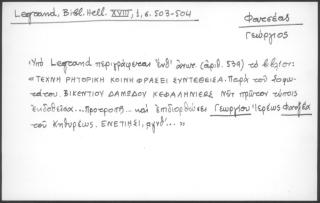 Legrand, Bibl. Hell. XVIII, 1, σ. 503-504
Φατσέας
Γεώργιος
Ὑπὸ Legrand περιγράφεται ἐνθ' ἄνωτ. (ἀριθ. 539) τὸ βιβλίον:
«ΤΕΧΝΗ ΡΗΤΟΡΙΚΗ ΚΟΙΝΗ ΦΡΑΣΕΙ ΣΥΝΤΕΘΕΙΣΑ. Παρὰ τοῦ Σοφω-
τάτου. ΒΙΚΕΝΤΙΟΥ ΔΑΜΟΔΟΥ ΚΕΦΑΛΛΗΝΙΕΩΣ. Νῦν πρῶτον τύποις
ἐκδοθεῖσα... Προτροπῇ... καὶ ἐπιδιορθώσει Γεωργίου Ἱερέως Φατζέα
τοῦ Κυθηρέως. ΕΝΕΤΙΗΣΙ, αψνθ'...»